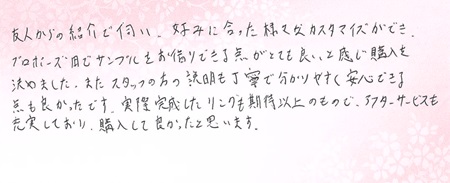 友人からの紹介で伺い、好みに合った様々なカスタマイズができ、
プロポーズ用でサンプルをお借りできる点がとても良いと感じ購入を
決めました。またスタッフの方の説明も丁寧で分かりやすく安心できる
点も良かったです。実際完成したリングも期待以上のもので、アフターサービスも
充実しており、購入して良かったと思います。